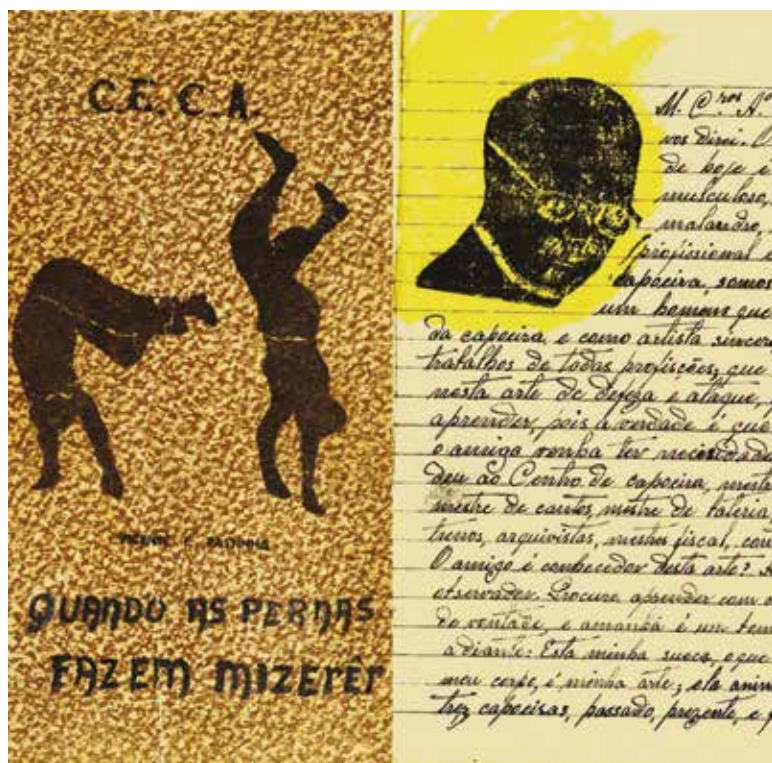 C.E.C.A.
VICENTE E PASTINHA
QUANDO AS PERNAS
FAZEM MIZERÊR
M. C.ros A.o
vos direi. O
de hoje é
musculoso,
malandro,
profissional
capoeira, somos
um homem que
da capoeira, e como artista sincero
trabalhos de todas profisções, que
nesta arte de defeza e ataque,
aprender, pois a verdade é que
o amigo venha ter necesidade
deu ao Centro de capoeira, mestre
mestre de cantos, mestre de bateria,
trenos, arquivistas, mestre fiscal, con
O amigo é conhecedor desta arte?
observador. Procure aprender com
de vontade, e amanhã é um tem
adiante: Esta minha sueca, e que
meu corpo, é minha arte; ela anim
trez capoeiras, passado, prezente, e